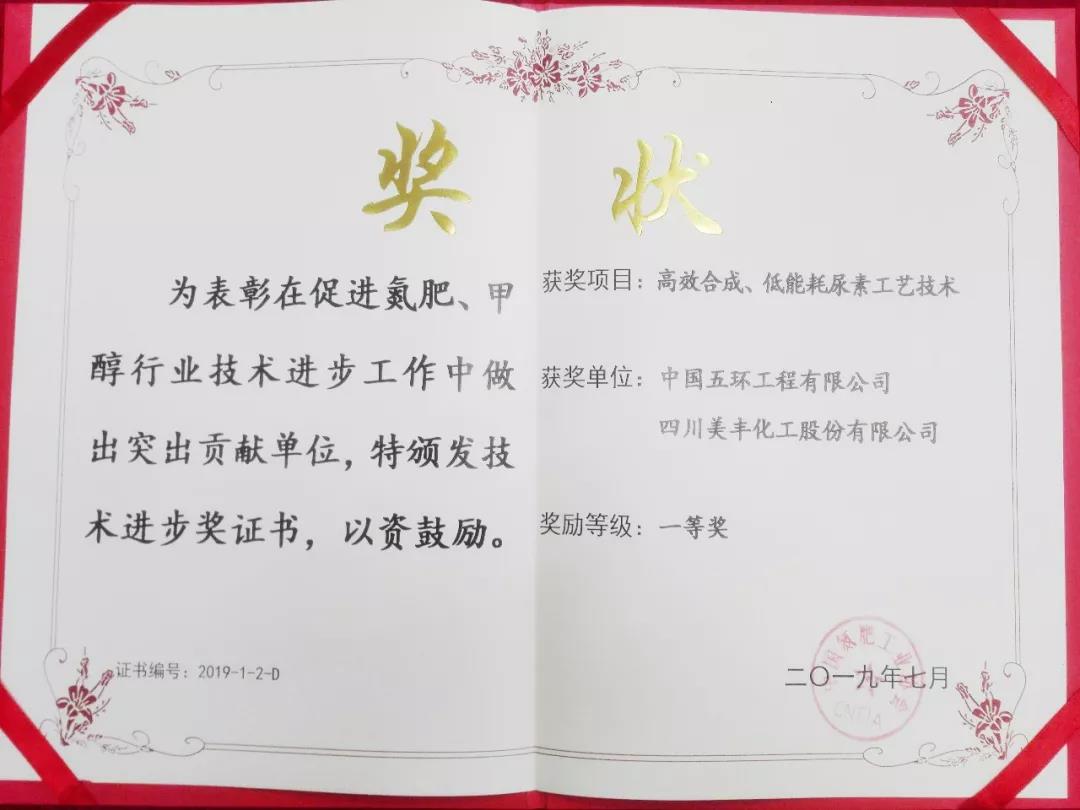 奖状
为表彰在促进氮肥、甲
醇行业技术进步工作中做
出突出贡献单位，特颁发技
术进步奖证书，以资鼓励。
证书编号：2019-1-2-D
获奖项目：高效合成、低能耗尿素工艺技术
获奖单位：中国五环工程有限公司
四川美丰化工股份有限公司
奖励等级：一等奖
二〇一九年七月
中国氮肥工业协会
CNFIA